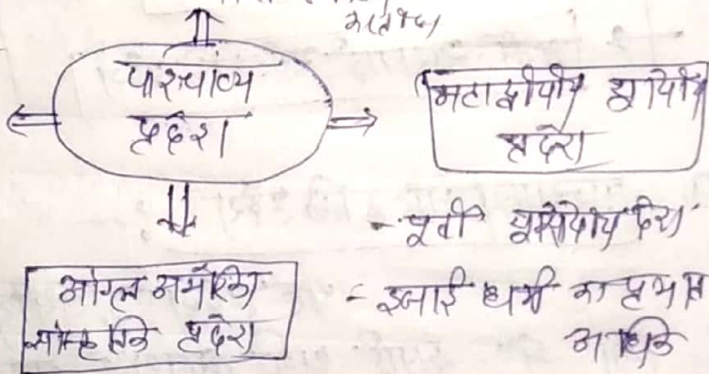 पाश्चात्य
प्रदेश
महाद्वीपीय यूरोपीय
प्रदेश
- पूर्वी यूरोपीय देश
- इसाई धर्म का प्रभाव
अधिक
आंग्ल अमेरिका
सांस्कृतिक प्रदेश